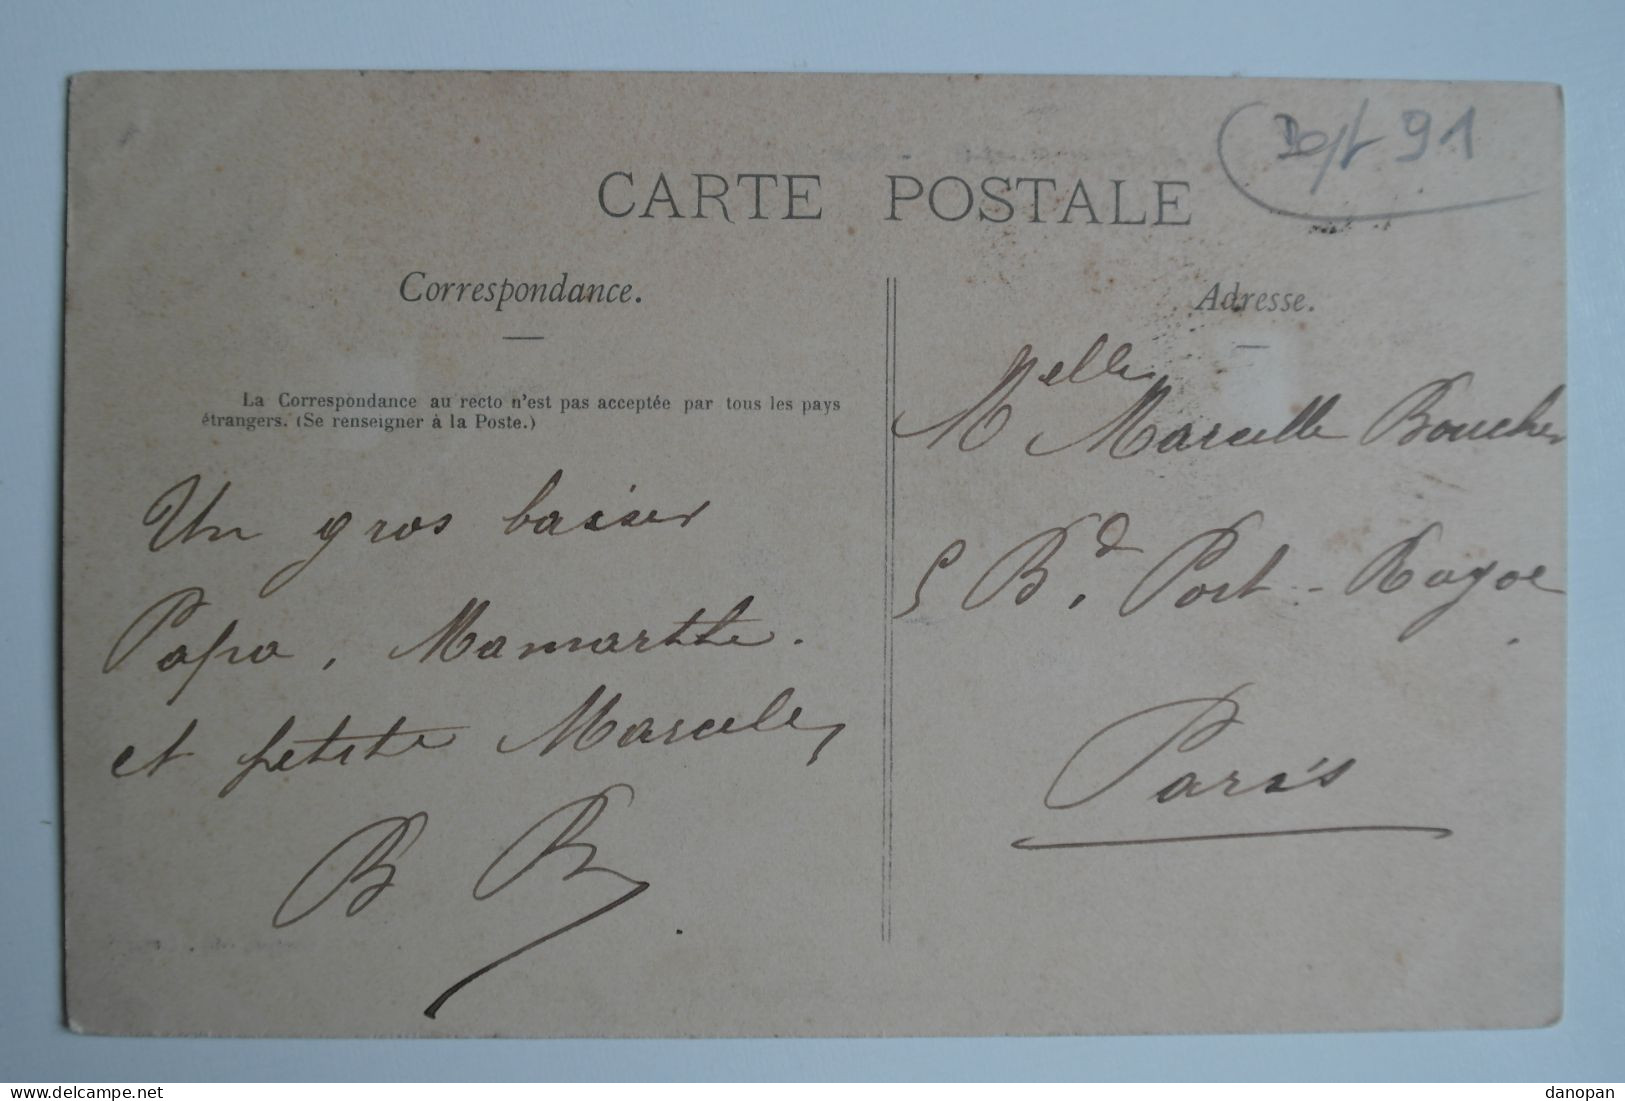 Dept 91
CARTE POSTALE
Correspondance.
La Correspondance au recto n'est pas acceptée par tous les pays
étrangers. (Se renseigner à la Poste.)
Un gros baiser
Papa, Mamarthe.
et petite Marcelle,
B B
Adresse.
Melle Marcelle Boucher
5 Bd. Port-Royal
Paris
delcampe.net
danopan